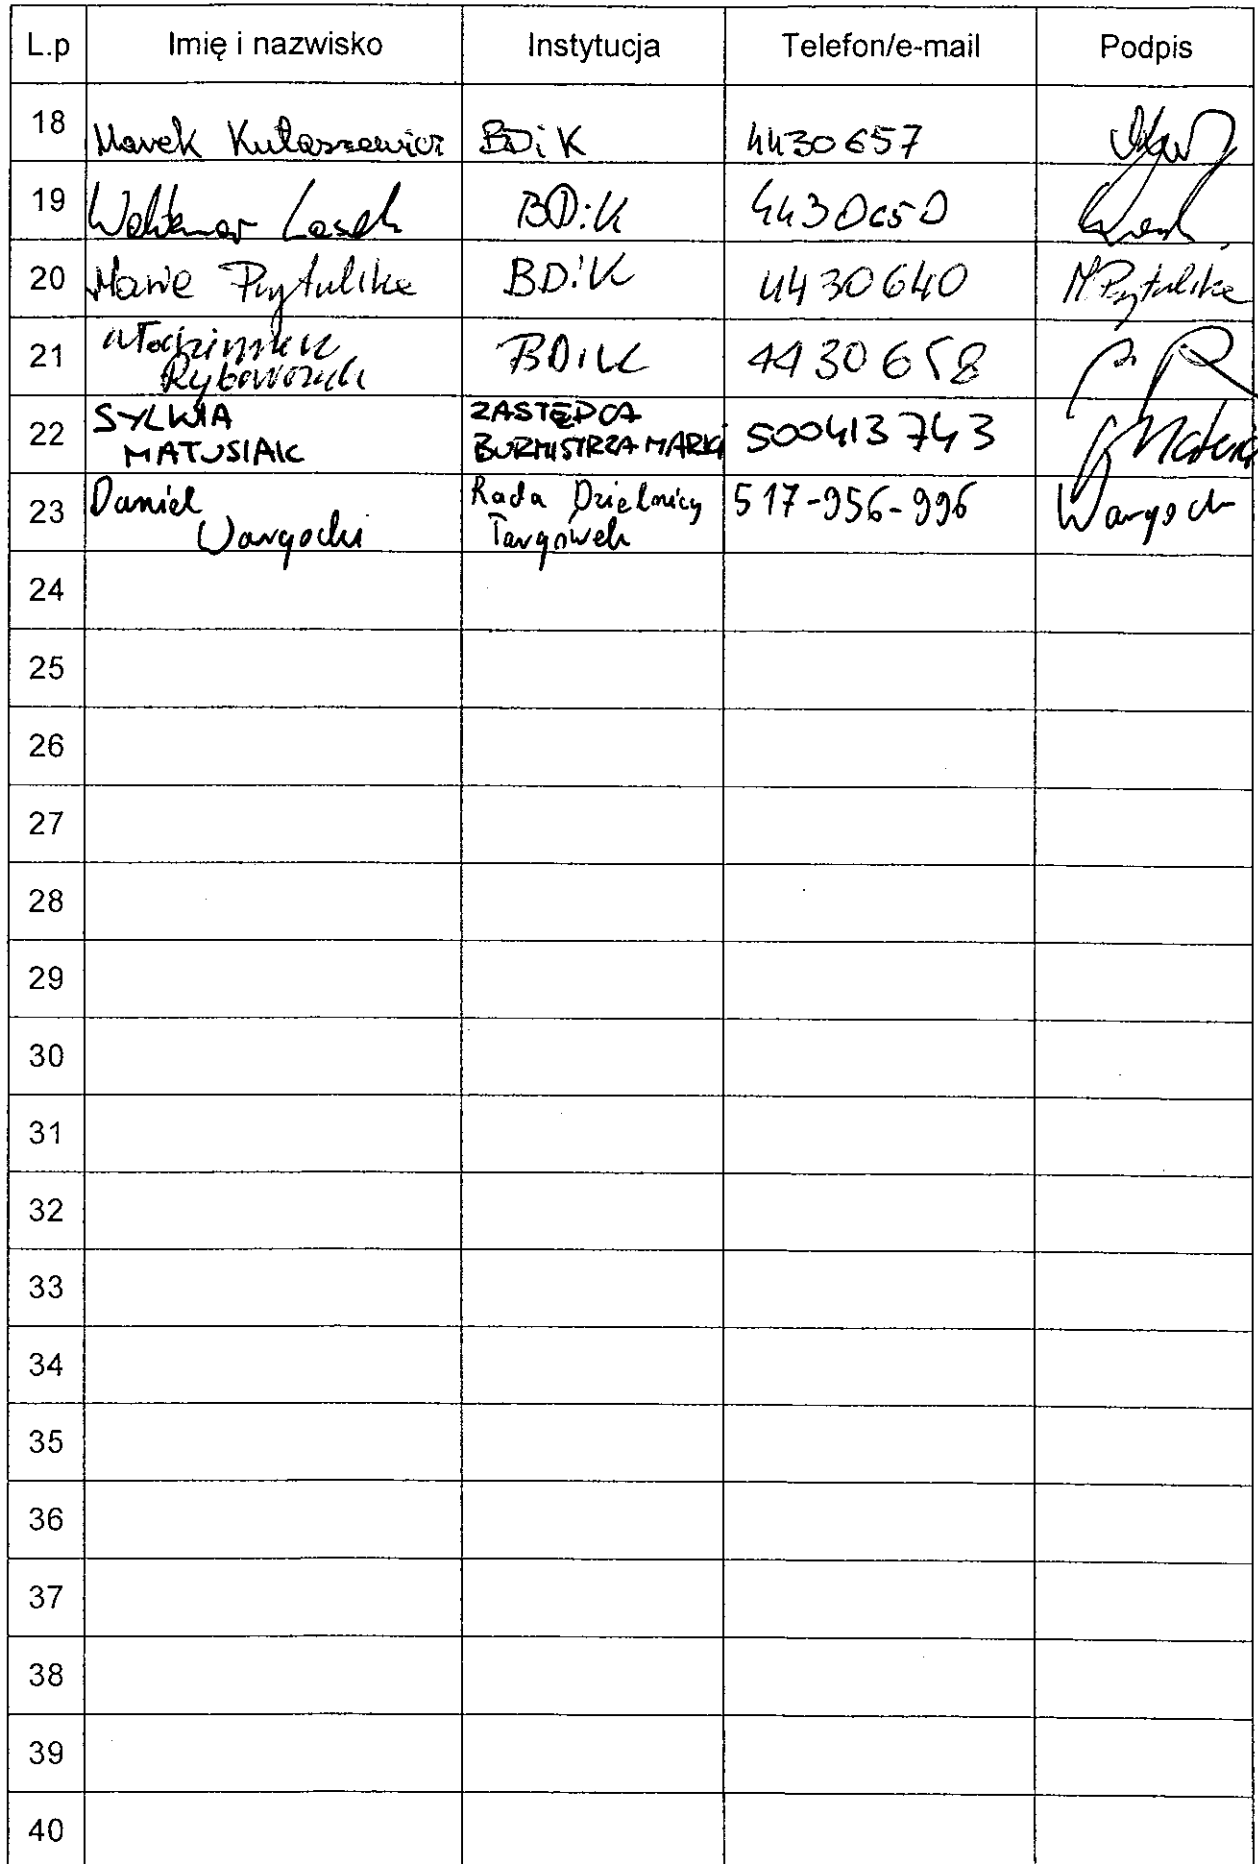 L.p Imię i nazwisko Instytucja Telefon/e-mail Podpis
18 Marek Kułaszewicz BDiK 4430657
19 Waldemar Lasek BDiK 4430650
20 Maria Przytulska BDiK 4430640 M Przytulska
21 Włodzimierz BDiK 4430658
22 SYLWIA MATUSIAK ZASTĘPCA BURMISTRZA MARKI 500413743
23 Daniel Wargocki Rada Dzielnicy Targówek 517-956-996 Wargocki
24
25
26
27
28
29
30
31
32
33
34
35
36
37
38
39
40